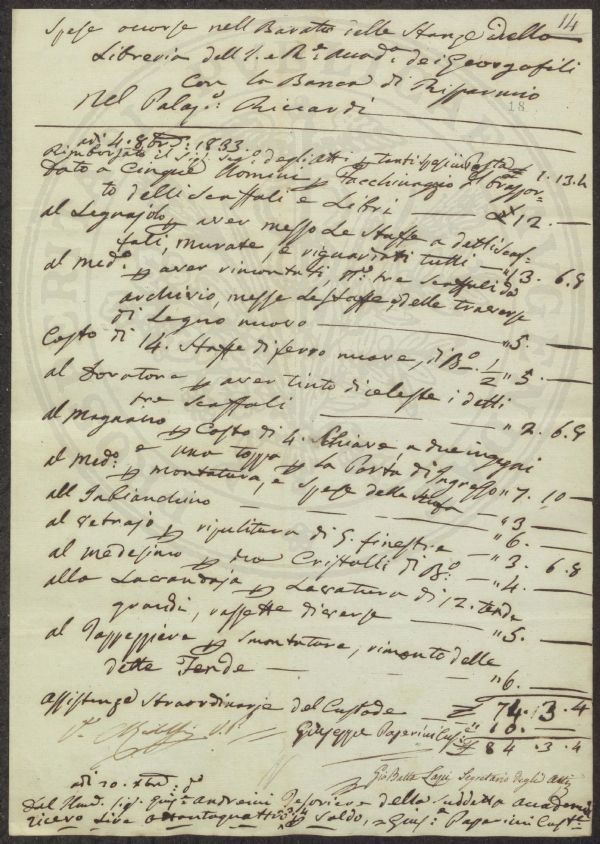 14
Spese occorse nell Baratto delle Stanze della
Libreria dell'I. e R.e Accad.a de i Georgofili
con la Banca di Risparmio
18
Nel Palaz.o Riccardi
adì 4. 8bre 1833.
Rimborsato il Sig.r Seg.o degli Atti p tanti spesi
Dato a Cinque Uomini p Facchinaggio e traspor-
to delli Scaffali e Libri — 12. —
al Legnajolo p aver messo Le Staffe a detti Scaf-
fali, murate, e riguardati tutti — " 13. 6. 8
al med.o p aver rimontati, tre Scaffali da
archivio, messe Le Staffe, e delle traverse
di Legno nuovo — " 5. —
Costo di 14. Staffe di ferro nuove, di 1/2 " 5. —
al Doratore p aver tinto di celeste i detti
tre Scaffali — " 2. 6. 8
al Magnano p Costo di 4. Chiave, a due ingegni
e una toppa p La Porta di Ingresso " 7. 10 —
al med.o p montatura, e Spese della Stufa — " 3 —
all Inbianchino — " 6. —
al Vetrajo p ripulitura di finestre — " 3. 6. 8
al medesimo p due Cristalli di — " 4. —
alla Lavandaja p Lavatura di 12. tende
grandi, rassette diverse — " 5. —
al Tappezziere p Smontatura, rimonto delle
dette Tende — " 6. —
74. 3. 4
Assistenze Straordinarie del Custode " 10. —
Giuseppe Paperini Cust.e 84. 3. 4
Gio Batta Lapi Segretario degli Atti
adì 20. Xbre
Dal Sig. Andreini Tesoriere della Suddetta Accademia
ricevo Lire Ottantaquattro p Saldo, Gius.e Paperini Cust.e